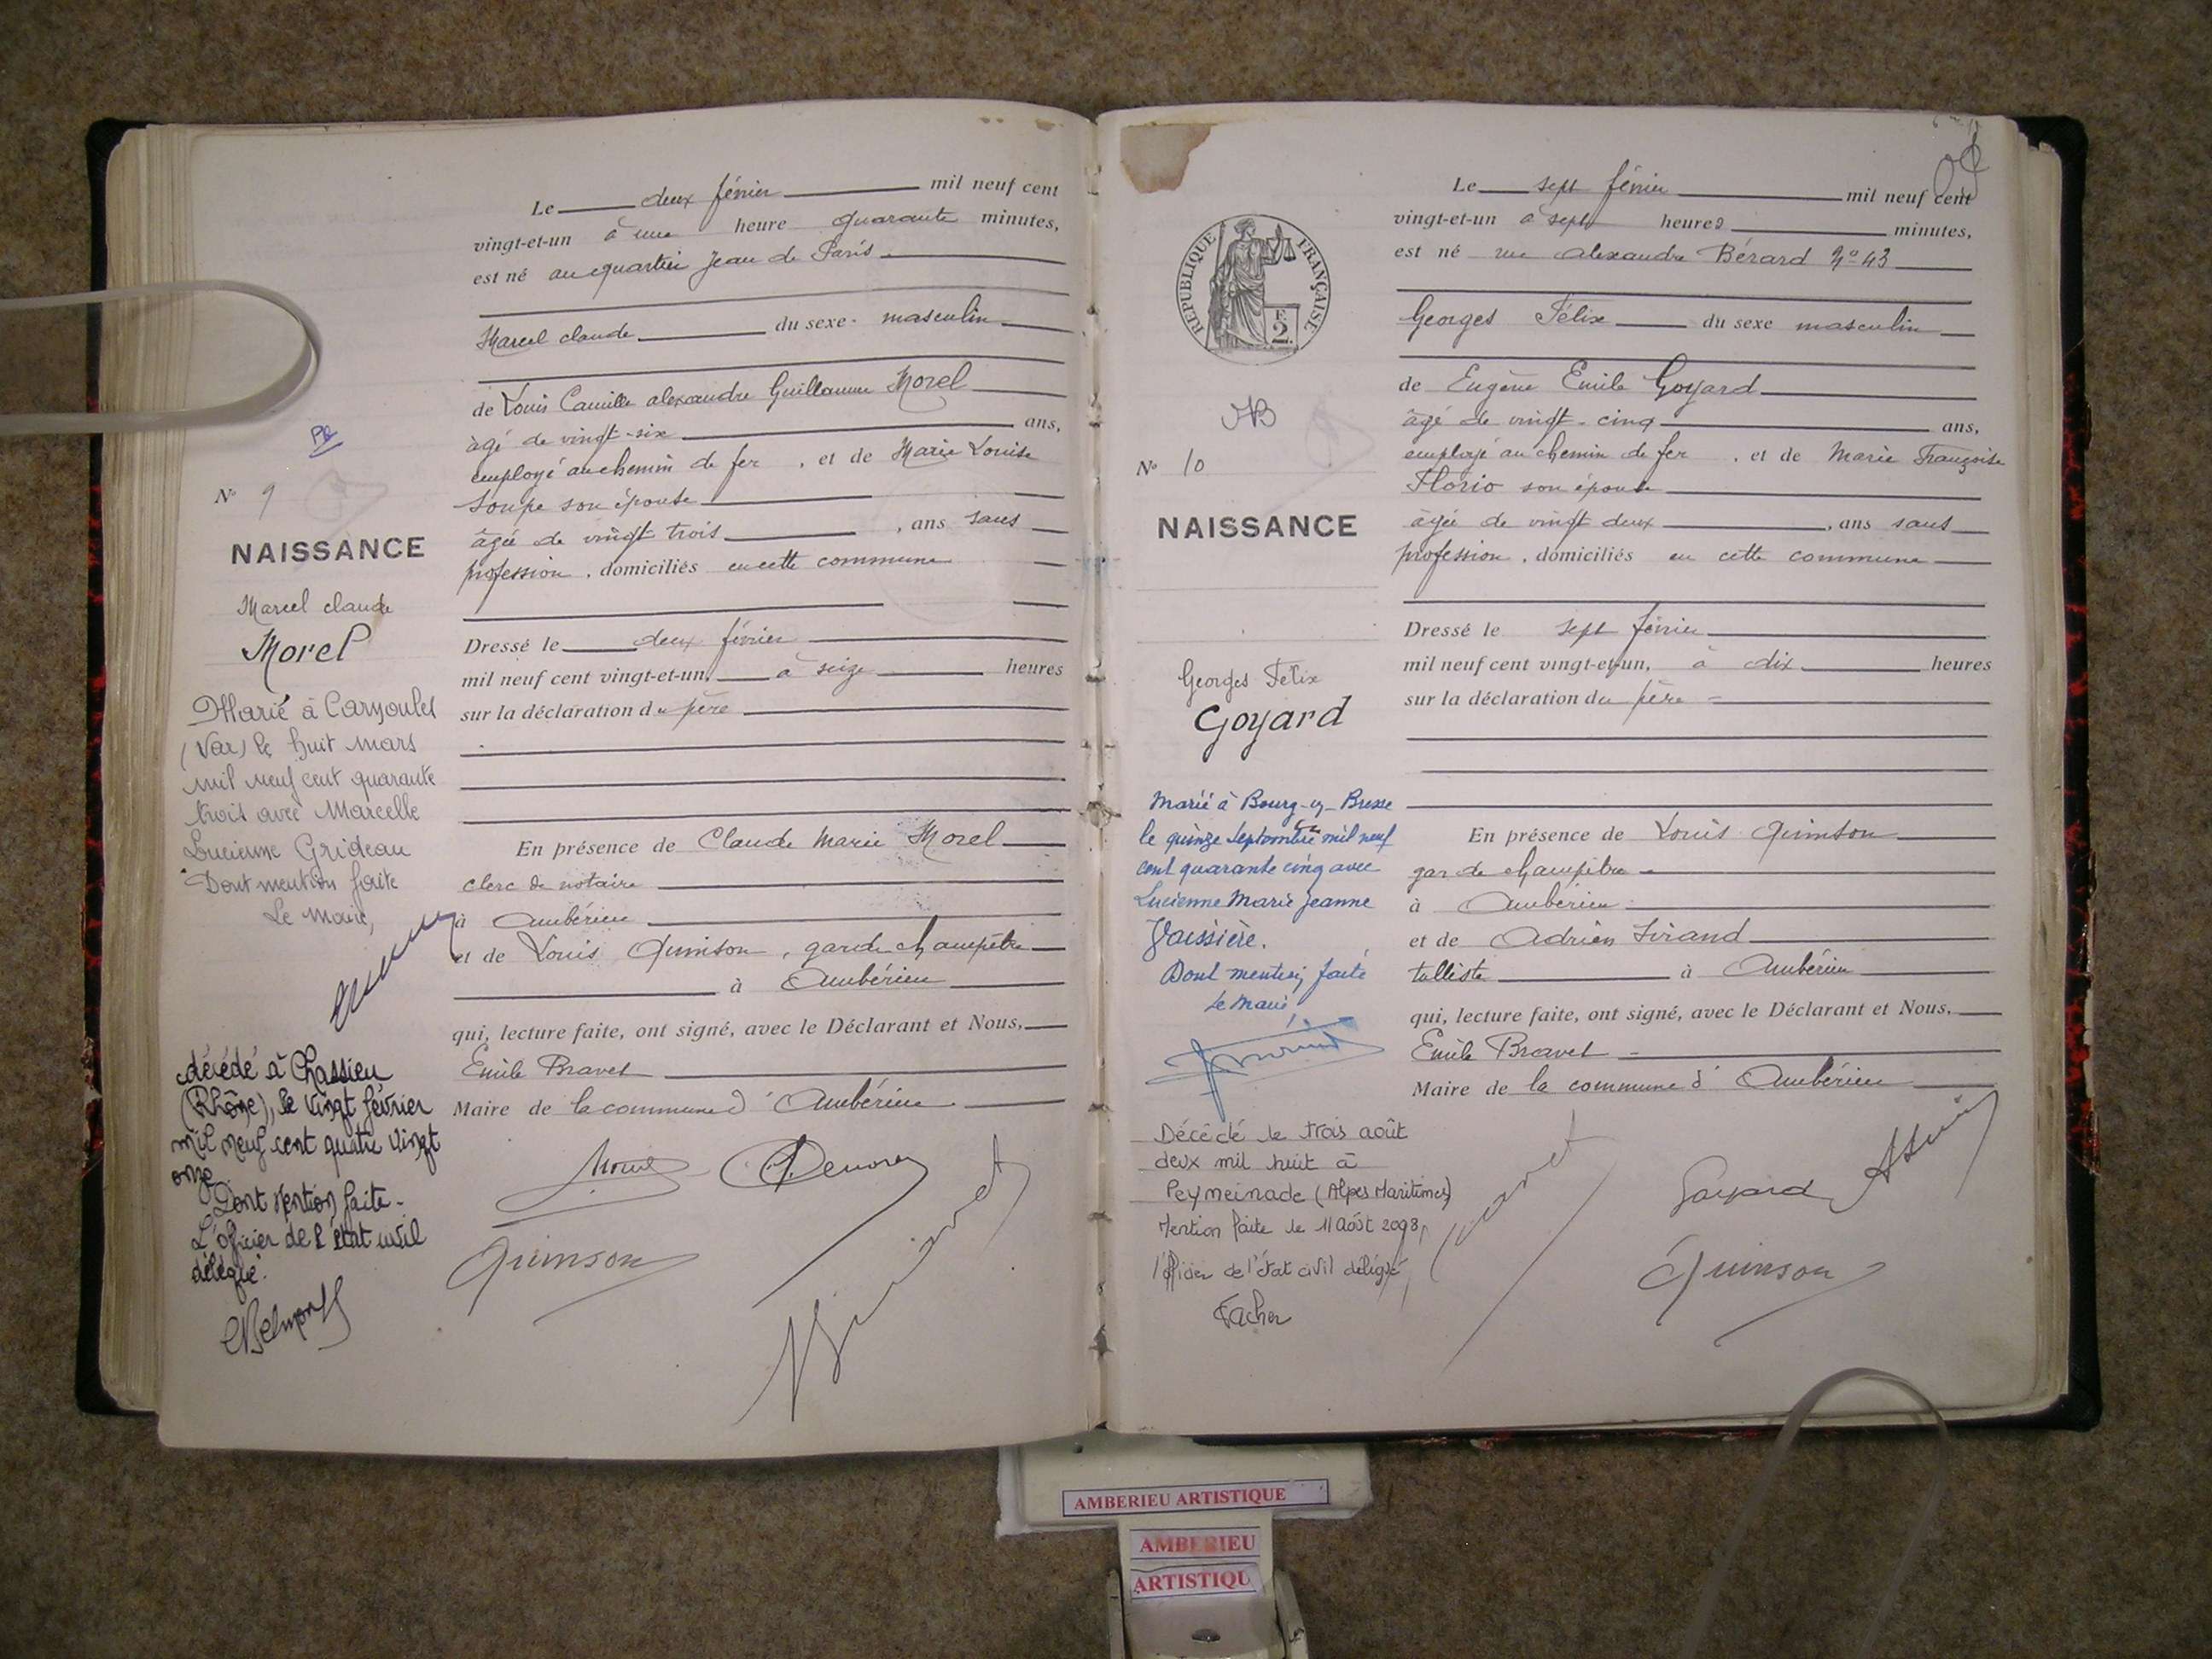 Le deux février mil neuf cent
vingt-et-un à une heure quarante minutes,
est né au quartier Jean de Paris
Marcel claude du sexe masculin
de Louis Camille alexandre Guillaume Morel
âgé de vingt-six ans,
employé au chemin de fer, et de Marie Louise
Soupe son épouse
âgée de vingt trois, ans sans
profession, domiciliés en cette commune
Dressé le deux février
mil neuf cent vingt-et-un, à seize heures
sur la déclaration du père
En présence de Claude Marie Morel
clerc de notaire
à Ambérieu
et de Louis Quinson, garde champêtre
à Ambérieu
qui, lecture faite, ont signé, avec le Déclarant et Nous,
Emile Bravet
Maire de la commune d'Ambérieu
Morel
Quinson
Bravet
PR
N° 9
NAISSANCE
Marcel claude
Morel
Marié à Carnoules
(Var) le huit mars
mil neuf cent quarante
trois avec Marcelle
Lucienne Grideau
Dont mention faite
Le Maire,
décédé à Chassieu
(Rhône), le vingt février
mil neuf cent quatre vingt
onze
Dont mention faite -
L'officier de l'état civil
délégué.
Le sept février mil neuf cent
vingt-et-un à sept heures minutes,
est né rue alexandre Bérard N° 43
Georges Félix du sexe masculin
de Eugène Emile Goyard
âgé de vingt-cinq ans,
employé au chemin de fer, et de Marie Françoise
Florio son épouse
âgée de vingt deux, ans sans
profession, domiciliés en cette commune
Dressé le sept février
mil neuf cent vingt-et-un, à dix heures
sur la déclaration du père
En présence de Louis Quinson
garde champêtre
à Ambérieu
et de Adrien Sirand
tulliste à Ambérieu
qui, lecture faite, ont signé, avec le Déclarant et Nous,
Emile Bravet
Maire de la commune d'Ambérieu
Bravet
Goyard
Quinson
REPUBLIQUE FRANÇAISE
F.
2
N° 10
NAISSANCE
Georges Félix
Goyard
Marié à Bourg-en-Bresse
le quinze septembre mil neuf
cent quarante cinq avec
Lucienne Marie Jeanne
Vaissière.
Dont mention faite
Le Maire
Décédé le trois août
deux mil huit à
Peymeinade (Alpes Maritimes)
Mention faite le 11 Août 2008,
l'officier de l'état civil délégué
Facher
AMBERIEU ARTISTIQUE
AMBERIEU
ARTISTIQU